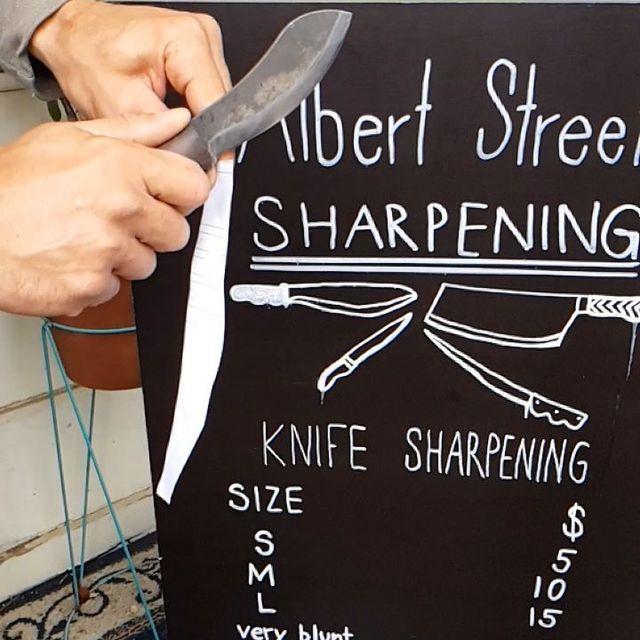 Albert Stree
SHARPENING
KNIFE SHARPENING
SIZE $
S 5
M 10
L 15
very blunt